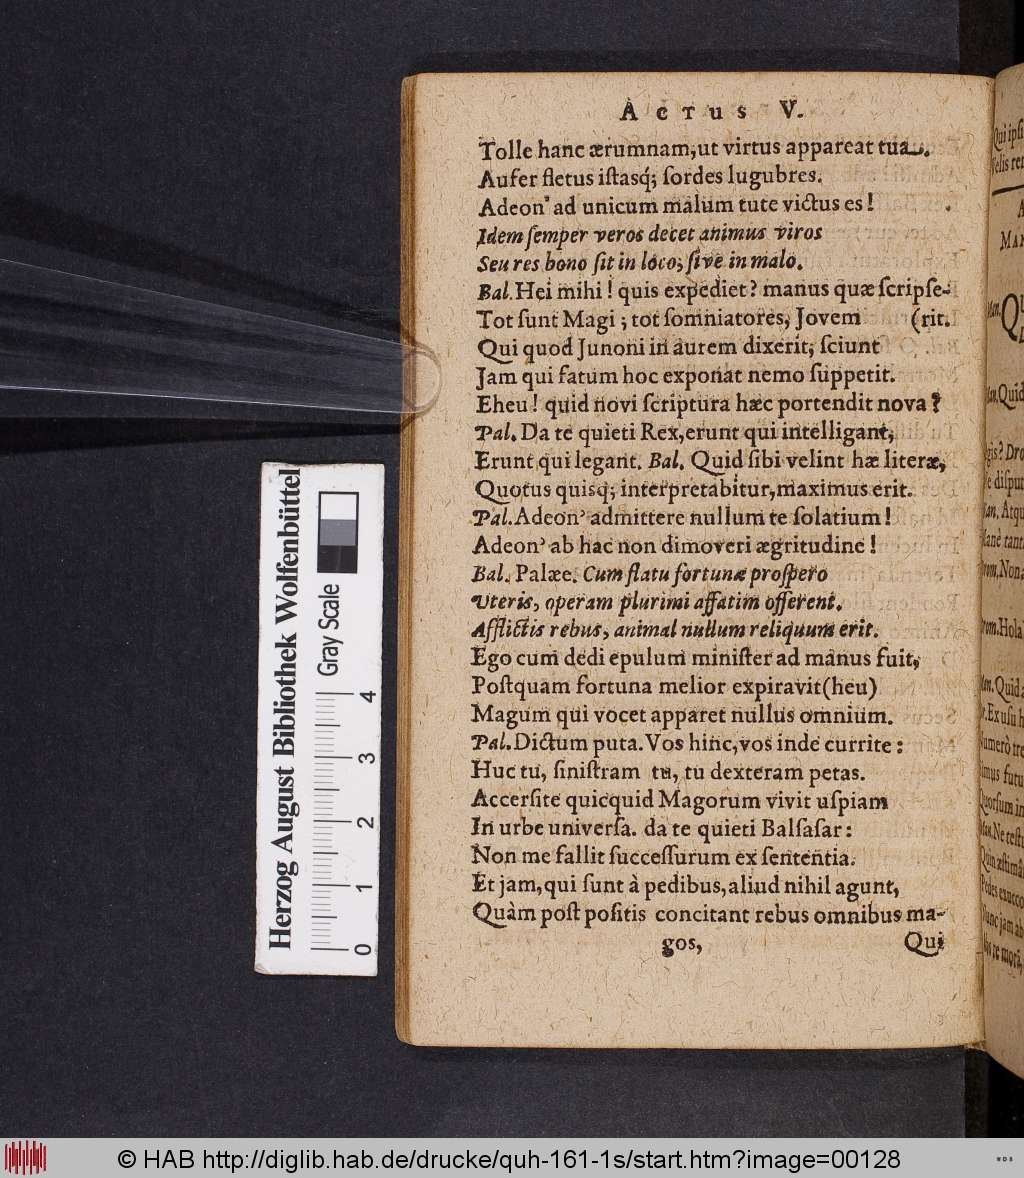 Actus V.
Tolle hanc ærumnam,ut virtus appareat tua.
Aufer fletus iſtasq́; ſordes lugubres.
Adeon' ad unicum malum tute victus es!
Idem ſemper veros decet animus viros
Seu res bono ſit in loco; ſive in malo.
Bal. Hei mihi! quis expediet? manus quæ ſcripſe-
Tot ſunt Magi; tot ſomniatores, Jovem (rit.
Qui quod Junoni in aurem dixerit, ſciunt
Jam qui fatum hoc exponat nemo ſuppetit.
Eheu! quid novi ſcriptura hæc portendit nova?
Pal. Da te quieti Rex,erunt qui intelligant,
Erunt qui legant. Bal. Quid ſibi velint hæ literæ,
Quotus quisq́; interpretabitur,maximus erit.
Pal. Adeon' admittere nullum te ſolatium!
Adeon' ab hac non dimoveri ægritudine!
Bal. Palæe. Cum flatu fortunæ proſpero
Uteris, operam plurimi affatim offerent.
Afflictis rebus, animal nullum reliquum erit.
Ego cum dedi epulum miniſter ad manus fuit,
Poſtquam fortuna melior expiravit(heu)
Magum qui vocet apparet nullus omnium.
Pal. Dictum puta. Vos hinc,vos inde currite:
Huc tu, ſiniſtram tu, tu dexteram petas.
Accerſite quicquid Magorum vivit uſpiam
In urbe univerſa. da te quieti Balſaſar:
Non me fallit ſucceſſurum ex ſententia.
Et jam,qui ſunt à pedibus,aliud nihil agunt,
Quàm poſt poſitis concitant rebus omnibus ma-
gos, Qui
Herzog August Bibliothek Wolfenbüttel
Gray Scale
0 1 2 3 4
© HAB http://diglib.hab.de/drucke/quh-161-1s/start.htm?image=00128